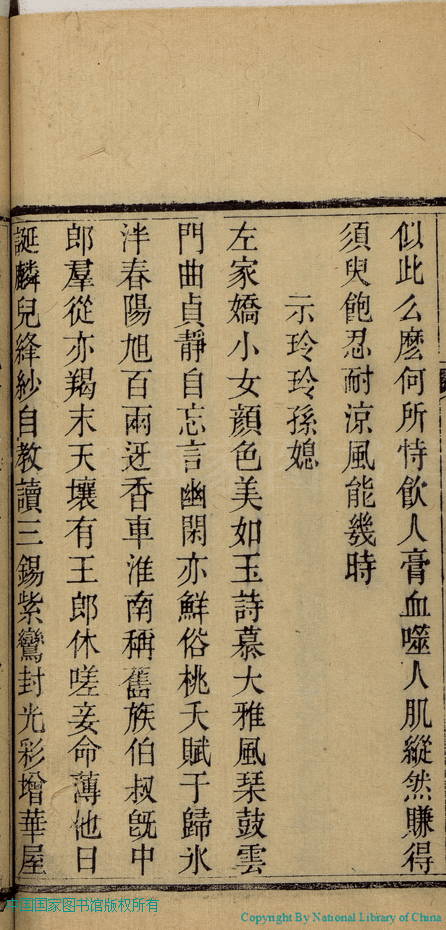 似此么麽何所恃飲人膏血噬人肌縱然賺得
須臾飽忍耐涼風能幾時
示玲玲孫媳
左家嬌小女顔色美如玉詩慕大雅風琹鼓雲
門曲貞靜自忘言幽閑亦鮮俗桃夭賦于歸氷
泮春陽旭百兩迓香車淮南稱舊族伯叔旣中
郎羣從亦羯末天壤有王郎休嗟妾命薄他日
誕麟兒絳紗自教讀三錫紫鸞封光彩增華屋
中国国家图书馆版权所有
Copyright By National Library of China